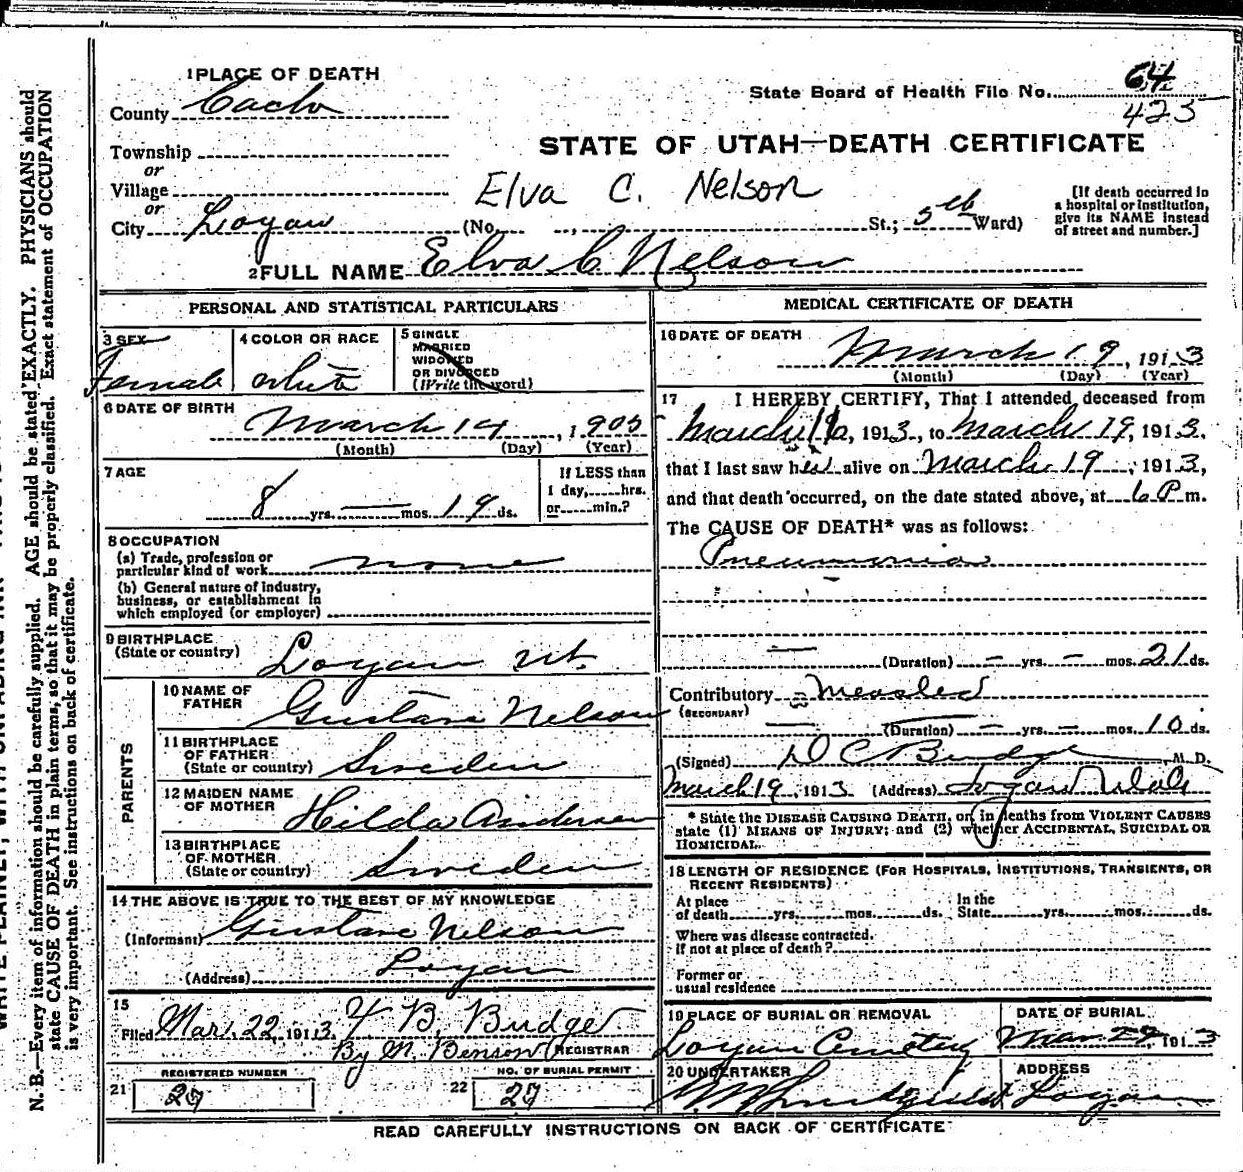 1 PLACE OF DEATH
County Cache
Township
or
Village
or
City Logan (No. St.; 5th Ward)
State Board of Health File No. 64
425
STATE OF UTAH—DEATH CERTIFICATE
Elva C. Nelson
[If death occurred in a hospital or institution, give its NAME instead of street and number.]
2 FULL NAME Elva C Nelson
PERSONAL AND STATISTICAL PARTICULARS
3 SEX
Female
4 COLOR OR RACE
white
5 SINGLE
MARRIED
WIDOWED
OR DIVORCED
(Write the word)
6 DATE OF BIRTH
March 14, 1905
(Month) (Day) (Year)
7 AGE
8 yrs. — mos. 19 ds.
If LESS than
1 day, hrs.
or min.?
8 OCCUPATION
(a) Trade, profession or
particular kind of work none
(b) General nature of industry,
business, or establishment in
which employed (or employer)
9 BIRTHPLACE
(State or country) Logan Ut.
PARENTS
10 NAME OF
FATHER Gustave Nelson
11 BIRTHPLACE
OF FATHER
(State or country) Sweden
12 MAIDEN NAME
OF MOTHER Hilda Anderson
13 BIRTHPLACE
OF MOTHER
(State or country) Sweden
14 THE ABOVE IS TRUE TO THE BEST OF MY KNOWLEDGE
(Informant) Gustave Nelson
(Address) Logan
15
Filed Mar. 22, 1913, B. Budge
By M. Benson REGISTRAR
REGISTERED NUMBER
21
NO. OF BURIAL PERMIT
22
MEDICAL CERTIFICATE OF DEATH
16 DATE OF DEATH
March 19, 1913
(Month) (Day) (Year)
17 I HEREBY CERTIFY, That I attended deceased from
March 16, 1913, to March 19, 1913,
that I last saw her alive on March 19, 1913,
and that death occurred, on the date stated above, at 6 P m.
The CAUSE OF DEATH* was as follows:
Pneumonia
(Duration) — yrs. — mos. 21 ds.
Contributory Measles
(SECONDARY)
(Duration) — yrs. — mos. 10 ds.
(Signed) D C Budge, M. D.
March 19, 1913 (Address) Logan Utah
* State the DISEASE CAUSING DEATH, or, in deaths from VIOLENT CAUSES
state (1) MEANS OF INJURY; and (2) whether ACCIDENTAL, SUICIDAL OR
HOMICIDAL.
18 LENGTH OF RESIDENCE (FOR HOSPITALS, INSTITUTIONS, TRANSIENTS, OR
RECENT RESIDENTS)
At place
of death yrs. mos. ds.
In the
State yrs. mos. ds.
Where was disease contracted.
if not at place of death?
Former or
usual residence
19 PLACE OF BURIAL OR REMOVAL
Logan Cemetery
DATE OF BURIAL
Mar. 1913
20 UNDERTAKER
ADDRESS
Logan
READ CAREFULLY INSTRUCTIONS ON BACK OF CERTIFICATE
N. B.—Every item of information should be carefully supplied. AGE should be stated EXACTLY. PHYSICIANS should
state CAUSE OF DEATH in plain terms, so that it may be properly classified. Exact statement of OCCUPATION
is very important. See instructions on back of certificate.